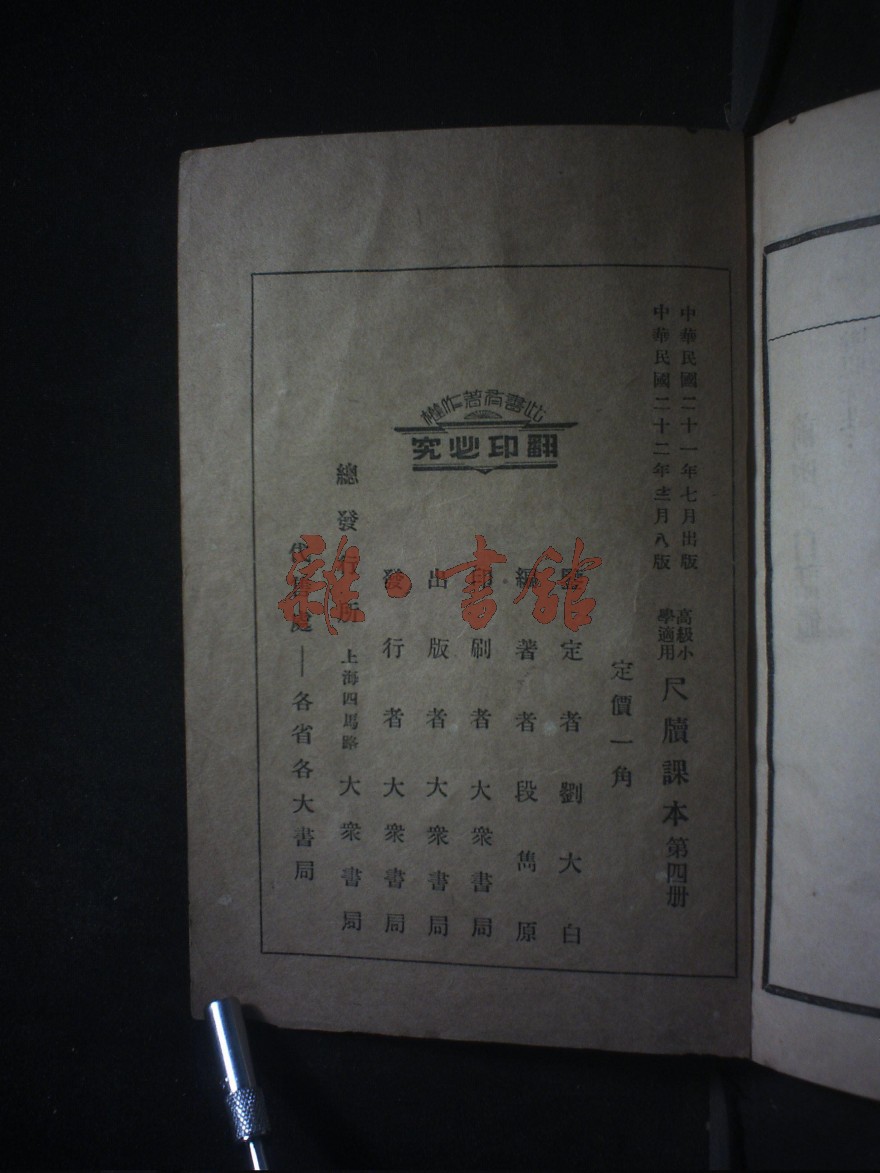 中華民國二十一年七月出版
中華民國二十二年十二月八版
高級小學適用 尺牘課本 第四册
定價一角
鑒定者 劉大白
編著者 段雋原
印刷者 大衆書局
出版者 大衆書局
發行者 大衆書局
總發行所 上海四馬路 大衆書局
代售處——各省各大書局
此書有著作權
翻印必究
雜·書館